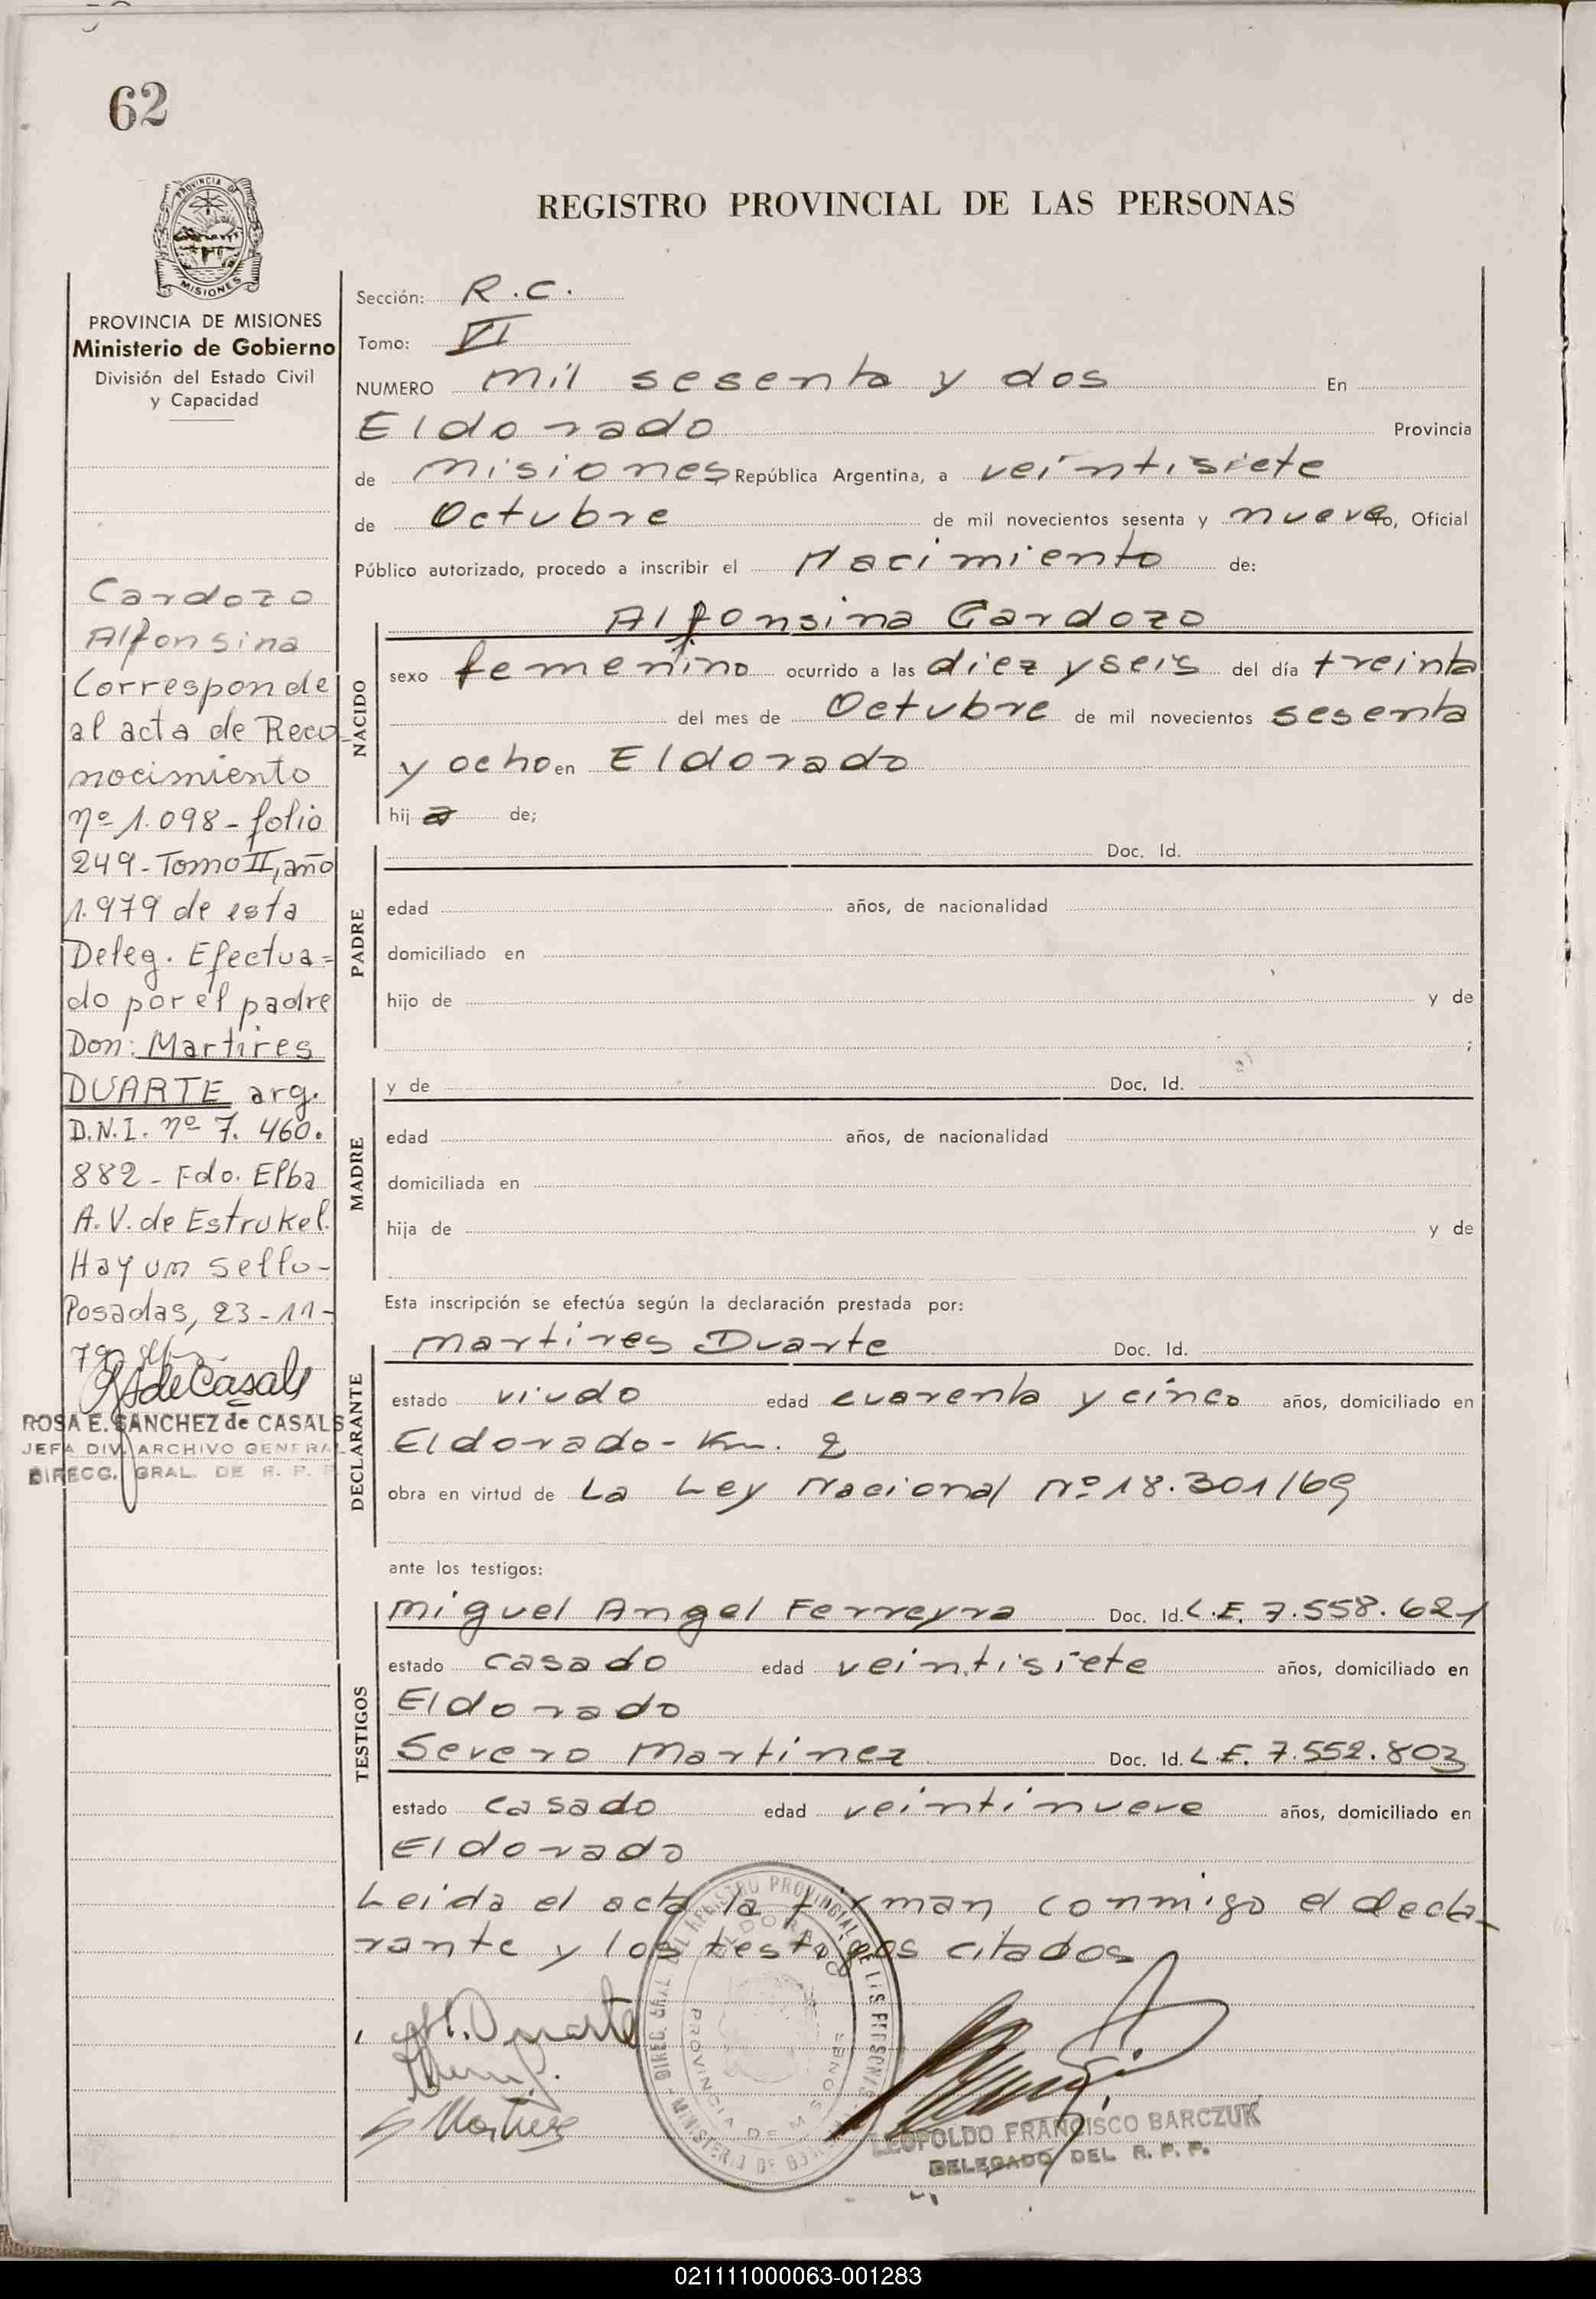 62
PROVINCIA DE
MISIONES
PROVINCIA DE MISIONES
Ministerio de Gobierno
División del Estado Civil
y Capacidad
Cardozo
Alfonsina
Corresponde
al acta de Reco-
nocimiento
nº 1.098 - folio
249 - Tomo II, año
1.979 de esta
Deleg. Efectua=
do por el padre
Don: Martires
DUARTE arg.
D.N.I. nº 7. 460.
882 - Fdo. Elba
A. V. de Estrukel.
Hay un sello -
Posadas, 23 - 11 -
79
ROSA E. SANCHEZ de CASALS
JEFA DIV. ARCHIVO GENERAL
DIRECC. GRAL. DE R. P. P.
REGISTRO PROVINCIAL DE LAS PERSONAS
Sección: R.C.
Tomo: VI
NUMERO mil sesenta y dos En
Eldorado Provincia
de misiones República Argentina, a veintisiete
de Octubre de mil novecientos sesenta y nueve Yo, Oficial
Público autorizado, procedo a inscribir el Nacimiento de:
NACIDO
Alfonsina Cardozo
sexo femenino ocurrido a las diez y seis del día treinta
del mes de Octubre de mil novecientos sesenta
y ocho en Eldorado
hij a de;
PADRE
Doc. Id.
edad años, de nacionalidad
domiciliado en
hijo de y de
;
MADRE
y de Doc. Id.
edad años, de nacionalidad
domiciliada en
hija de y de
Esta inscripción se efectúa según la declaración prestada por:
DECLARANTE
martires Duarte Doc. Id.
estado viudo edad cuarenta y cinco años, domiciliado en
Eldorado - Km. 2
obra en virtud de La Ley Nacional Nº 18.301/69
ante los testigos:
TESTIGOS
Miguel Angel Ferreyra Doc. Id. L.E. 7.558.621
estado casado edad veintisiete años, domiciliado en
Eldorado
Severo Martinez Doc. Id. L.E. 7.552.803
estado casado edad veintinueve años, domiciliado en
Eldorado
Leida el acta la firman conmigo el decla-
rante y los testigos citados
DIREC. GRAL. DEL REGISTRO PROVINCIAL DE LAS PERSONAS
MINISTERIO DE GOBIERNO
ELDORADO
PROVINCIA DE MISIONES
M. Duarte
S Martinez
LEOPOLDO FRANCISCO BARCZUK
DELEGADO DEL R. P. P.
021111000063-001283